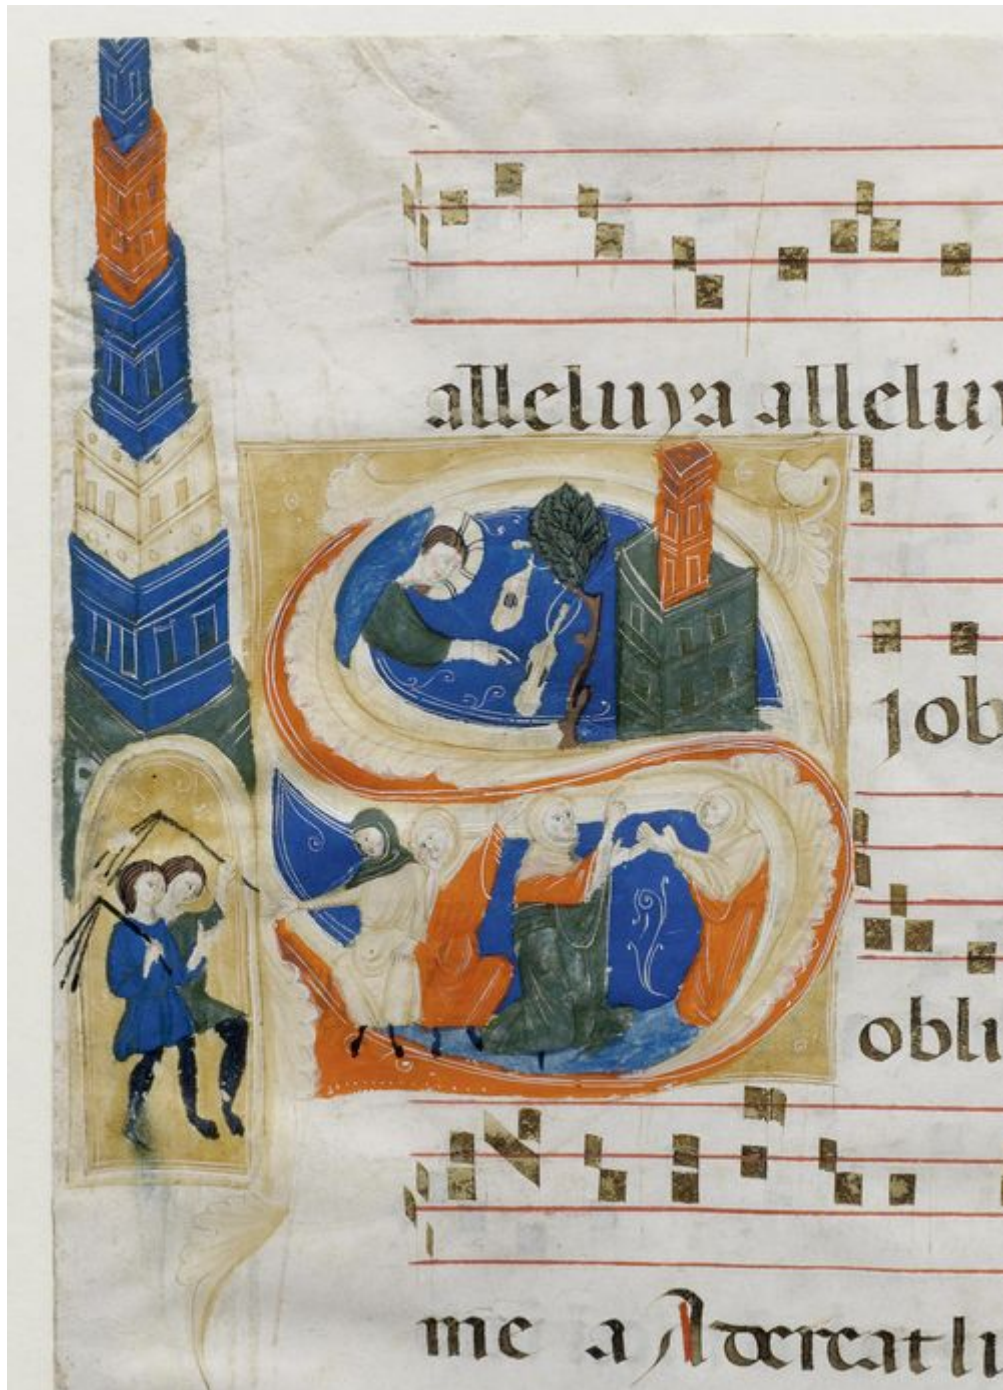 alleluya alleluy
Sjob
obli
me a Adereat li